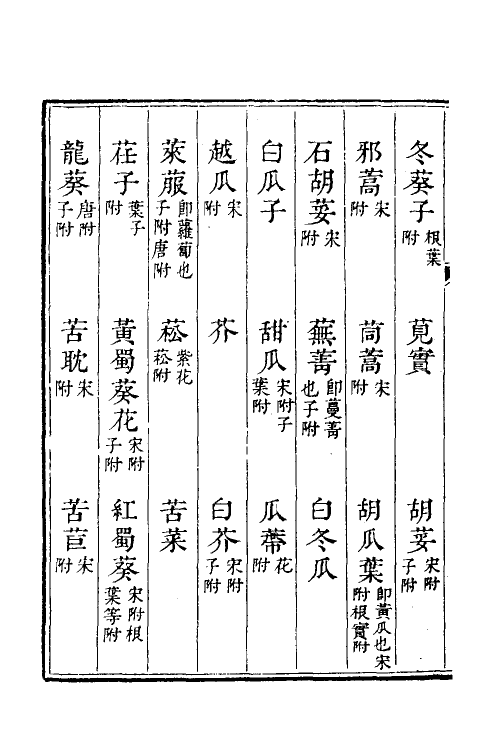 冬葵子根葉附　莧實　胡荽宋附子附
邪蒿宋附　茼蒿宋附　胡瓜葉即黃瓜也宋附根實附
石胡荽宋附　蕪菁即蔓菁也子附　白冬瓜
白瓜子　甜瓜宋附子葉附　瓜蔕花附
越瓜宋附　芥　白芥宋附子附
萊菔即蘿蔔也子附唐附　菘紫花菘附　苦菜
荏子葉子附　黃蜀葵花宋附子附　紅蜀葵宋附根葉等附
龍葵唐附子附　苦耽宋附　苦苣宋附